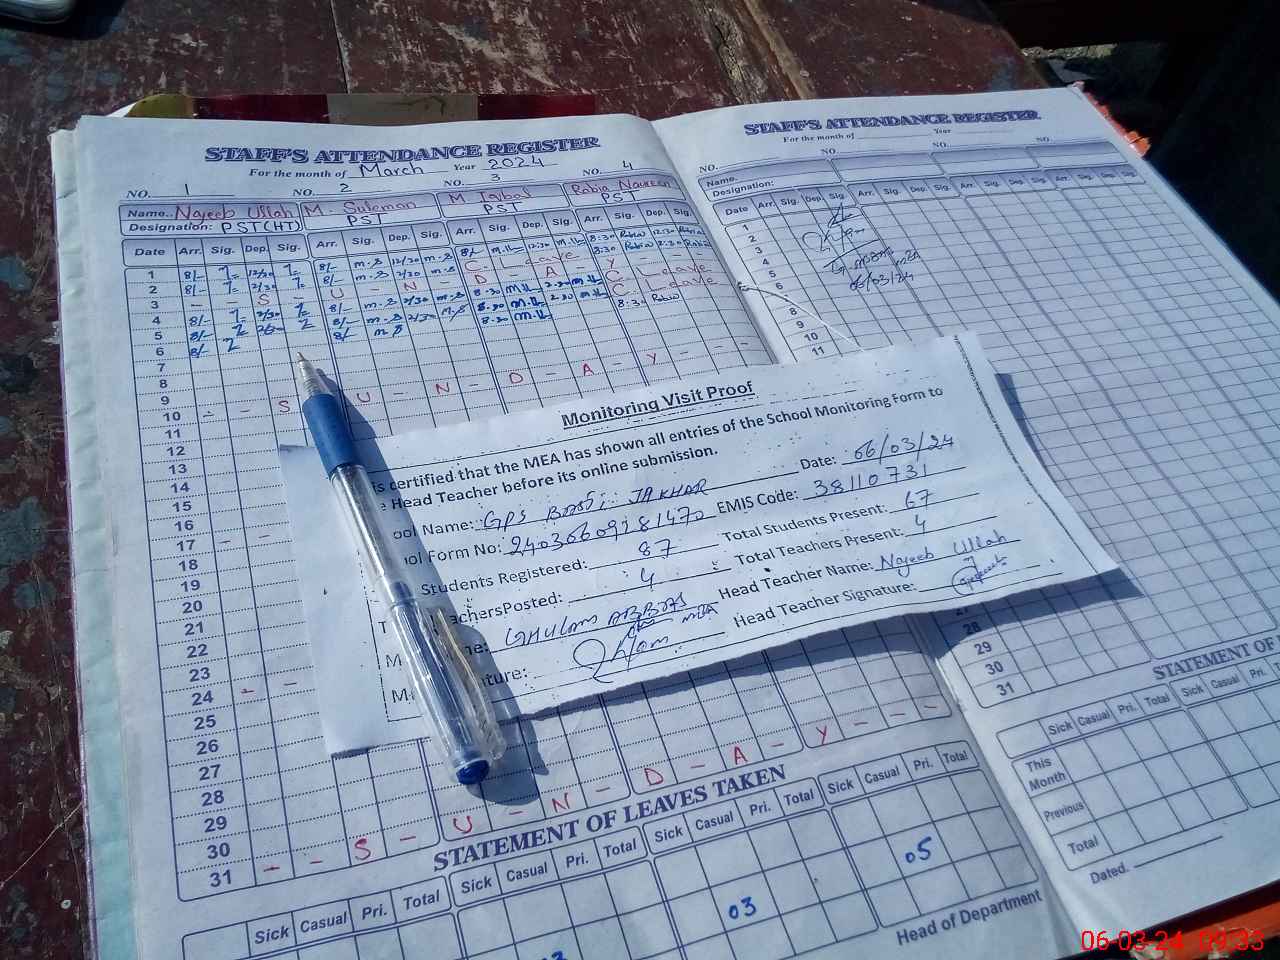 STAFF'S ATTENDANCE REGISTER
For the month of March Year 2024
NO. 1 NO. 2 NO. 3 NO. 4
Name. Najeeb Ullah M. Suleman M Iqbal Rabia Naureen
Designation: PST(HT) PST PST PST
Date Arr. Sig. Dep. Sig. Arr. Sig. Dep. Sig. Arr. Sig. Dep. Sig. Arr. Sig. Dep. Sig.
1 8/- 12/30 8/- m.s 12/30 m.s 8/- 12:30 8:30 Rabia 12:30 Rabia
2 8/- 2/30 8/- m.s 2/30 m.s C. Leave 8:30 Rabia 2:30 Rabia
3 - - S - U - N - D - A - Y - -
4 8/- 2/30 8/- m.s 2/30 m.s 8.30 2.30 C. Leave
5 8/- 8/- m.s 2/30 m.s 8.30 2.30 C. Leave
6 8/- 8/- m.s 8.30 8:30 Rabia
7
8
9
10 - - S U - N - D - A - Y - - -
11
12
13
14
15
16
17 - -
18
19
20
21
22
23
24 - -
25
26
27
28
29
30
31 - - S - U - N - D - A - Y - - -
STATEMENT OF LEAVES TAKEN
Sick Casual Pri. Total Sick Casual Pri. Total Sick Casual Pri. Total Sick Casual Pri. Total
03 05
Head of Department
STAFF'S ATTENDANCE REGISTER
For the month of Year
NO. NO. NO. NO.
Name.
Designation:
Date Arr. Sig. Dep. Sig. Arr. Sig. Dep. Sig. Arr. Sig. Dep. Sig. Arr. Sig. Dep. Sig.
1
2
3
4
5
6
06/03/24
8
9
10
11
28
29
30
31
STATEMENT OF
Sick Casual Pri. Total Sick Casual Pri.
This Month
Previous
Total
Dated.
Monitoring Visit Proof
certified that the MEA has shown all entries of the School Monitoring Form to
Head Teacher before its online submission.
Name: GPS JAKHAR Date: 06/03/24
Form No: EMIS Code: 38110731
Students Registered: 87 Total Students Present: 67
Posted: 4 Total Teachers Present: 4
GHULAM ABBAS MEA Head Teacher Name: Najeeb Ullah
Head Teacher Signature:
06-03-24 09:33